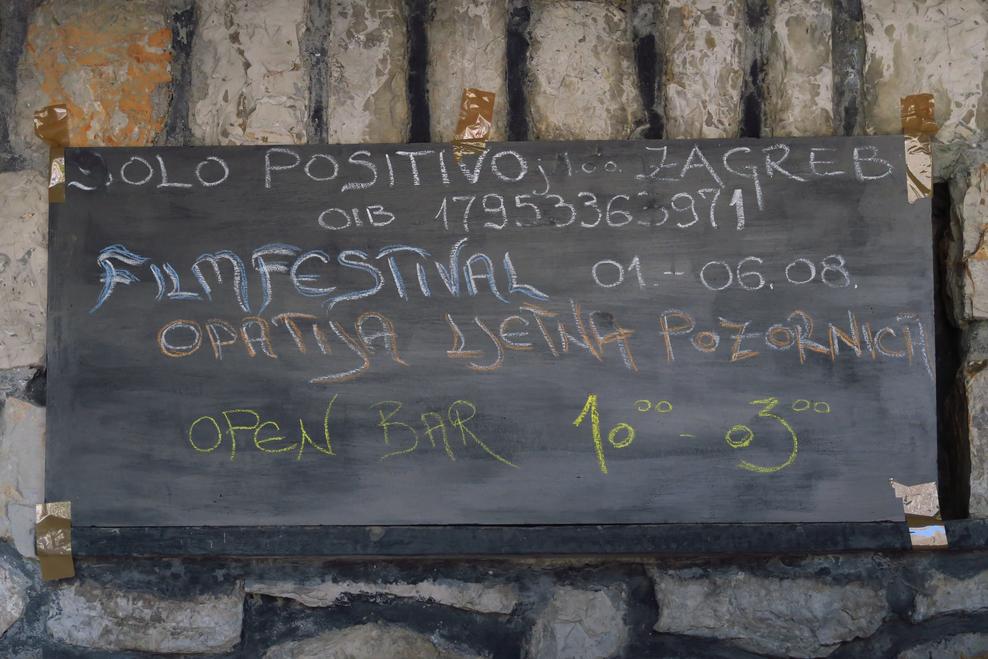 SOLO POSITIVO, j.d.o.o. ZAGREB
OIB 17953363971
FILMFESTIVAL 01.- 06.08.
OPATIJA LJETNA POZORNICA
OPEN BAR 10⁰⁰ - 03⁰⁰